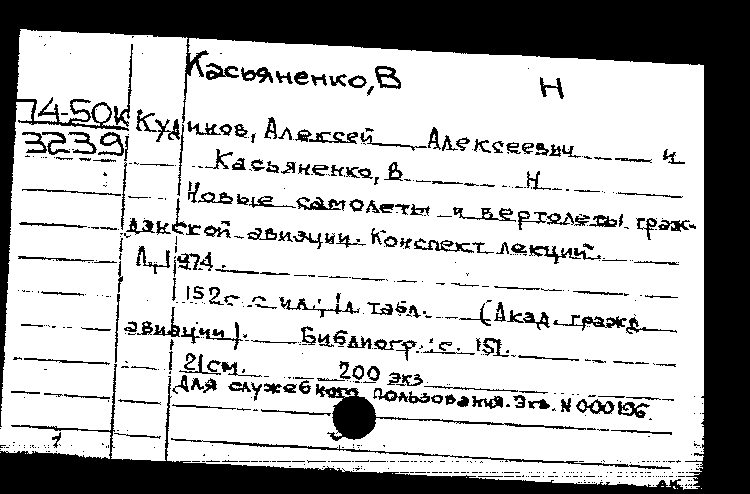 Касьяненко, В Н
74-50к
3239
Кудинов, Алексей Алексеевич и
Касьяненко, В Н
Новые самолеты и вертолеты граж-
данской авиации. Конспект лекций.
Л., 1974.
152с. с ил.; 1л. табл. (Акад. гражд.
авиации). Библиогр.: с. 151.
21см. 200 экз
Для служебного пользования. Экз. N 000196
АК